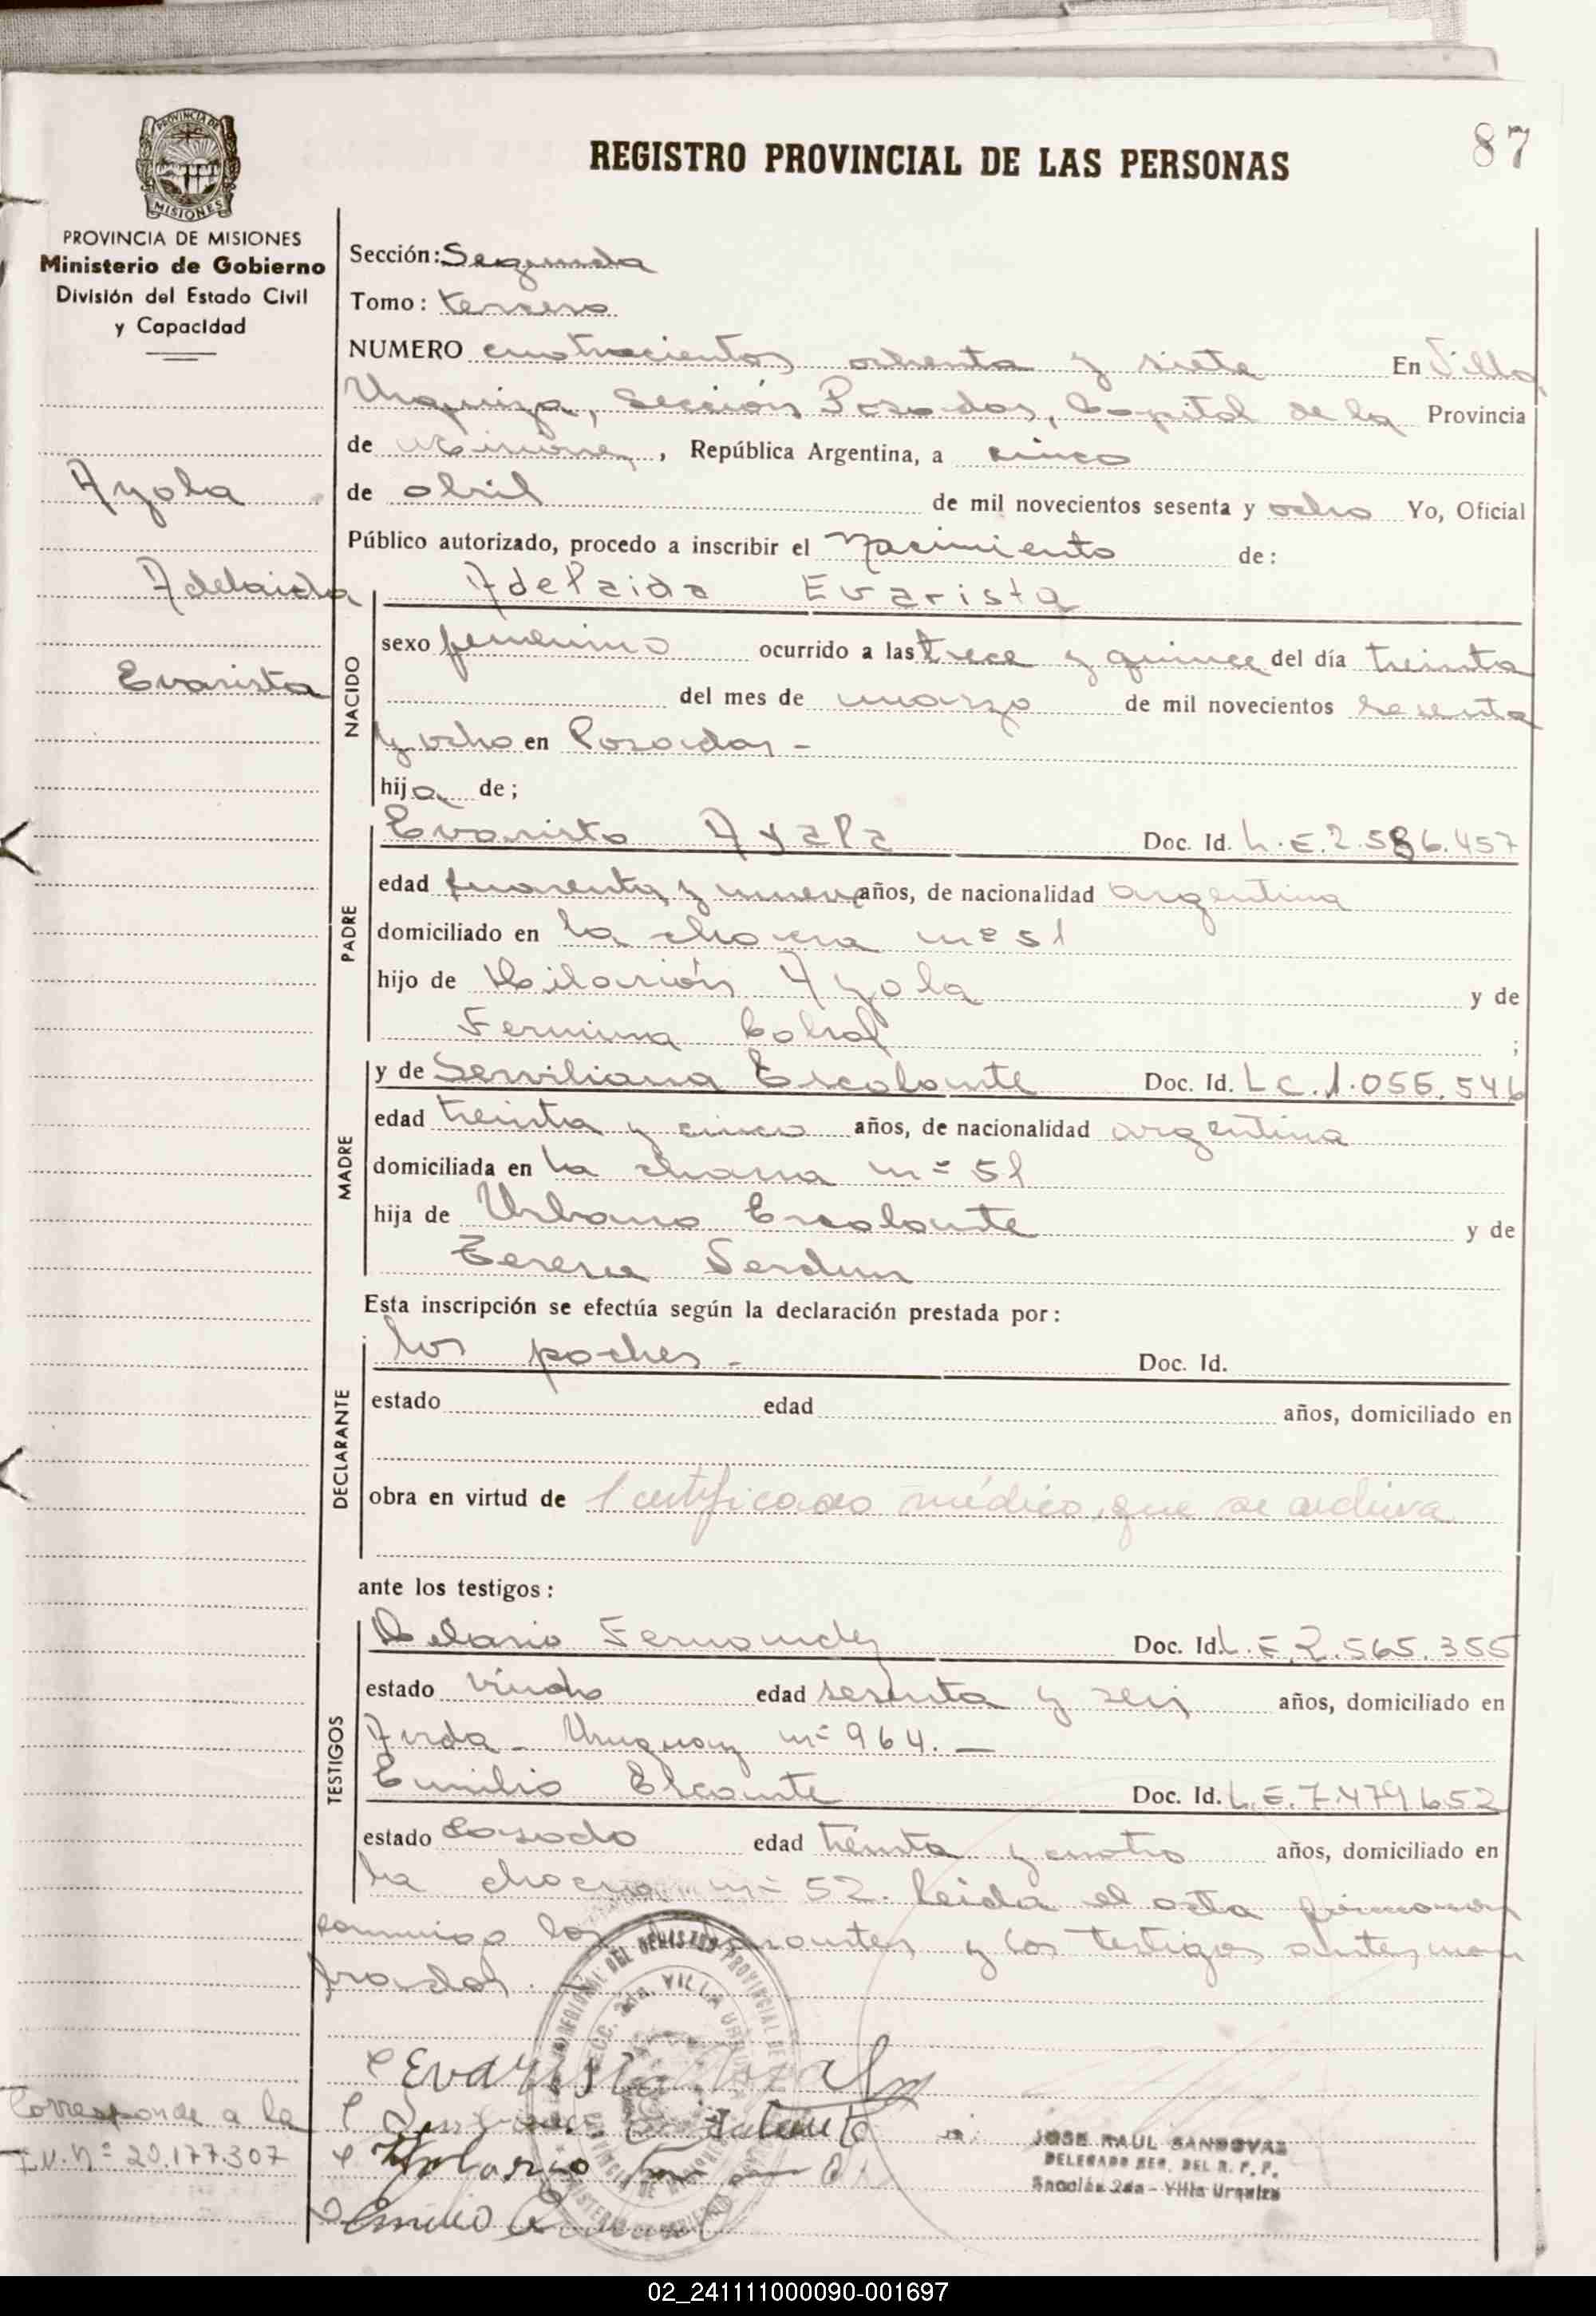 87
REGISTRO PROVINCIAL DE LAS PERSONAS
PROVINCIA DE MISIONES
PROVINCIA DE MISIONES
Ministerio de Gobierno
División del Estado Civil
y Capacidad
Ayala
Adelaida
Evarista
Sección: Segunda
Tomo: tercero
NUMERO cuatrocientos ochenta y siete En Villa
Urquiza, Sección Posadas, Capital de la Provincia
de Misiones, República Argentina, a cinco
de abril de mil novecientos sesenta y ocho Yo, Oficial
Público autorizado, procedo a inscribir el Nacimiento de:
NACIDO
Adelaida Evarista
sexo femenino ocurrido a las trece y quince del día treinta
del mes de marzo de mil novecientos sesenta
y ocho en Posadas -
hija de;
PADRE
Evaristo Ayala Doc. Id. L.E.2.586.457
edad cuarenta y nueve años, de nacionalidad argentina
domiciliado en la chacra nº 51
hijo de Hilarión Ayala y de
Fermina Cabral ;
MADRE
y de Serviliana Escalante Doc. Id. L.C.1.055.546
edad treinta y cinco años, de nacionalidad argentina
domiciliada en la chacra nº 51
hija de Urbano Escalante y de
Teresa
Esta inscripción se efectúa según la declaración prestada por:
DECLARANTE
los padres - Doc. Id.
estado edad años, domiciliado en
obra en virtud de 1 certificado médico, que se archiva
ante los testigos:
TESTIGOS
Fernandez Doc. Id. L.E.2.565.355
estado viudo edad sesenta y seis años, domiciliado en
Avda - Uruguay nº 964. -
Emilio Doc. Id. L.E.7.479.652
estado casado edad treinta y cuatro años, domiciliado en
la chacra nº 52. Leida el acta firmaron
conmigo los y los testigos antes nom
brados.
REGIONAL DEL REGISTRO PROVINCIAL DE
SECC. 2da. VILLA URQUIZA
PROVINCIA DE MISIONES
MINISTERIO DE GOBIERNO
Evaristo Ayala
Emilio
Corresponde a la
L.U.Nº 20.177.307
JOSE RAUL SANDOVAL
DELEGADO REG. DEL R. P. P.
Sección 2da - Villa Urquiza
02_241111000090-001697